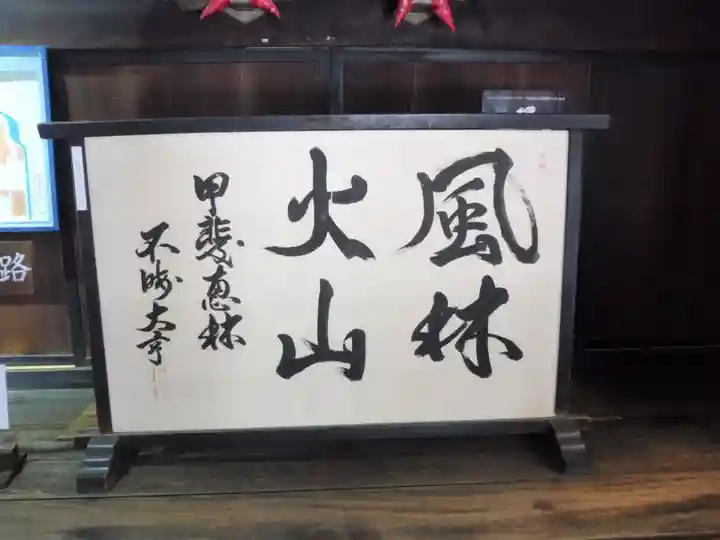 風林
火山
甲斐恵林
不時大亨
路